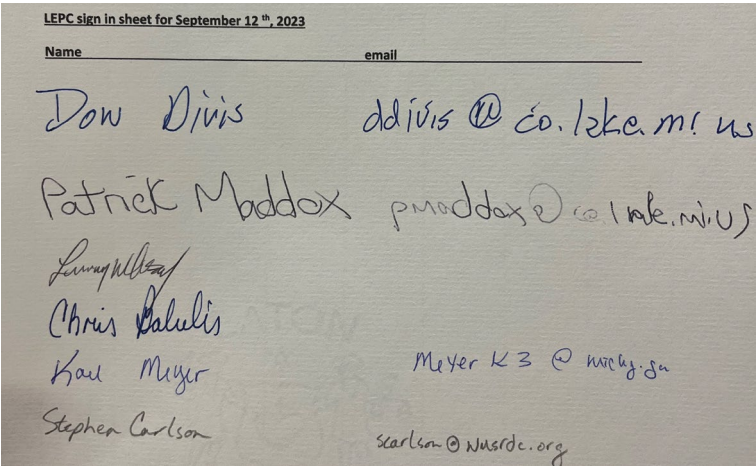 LEPC sign in sheet for September 12 th, 2023
Name email
Don Divis ddivis @ co.lake.mi us
Patrick Maddox pmaddox@co.lake.mi.us
Chris Balulis
Karl Meyer Meyer K 3 @
Stephen Carlson scarlson@wusrdc.org